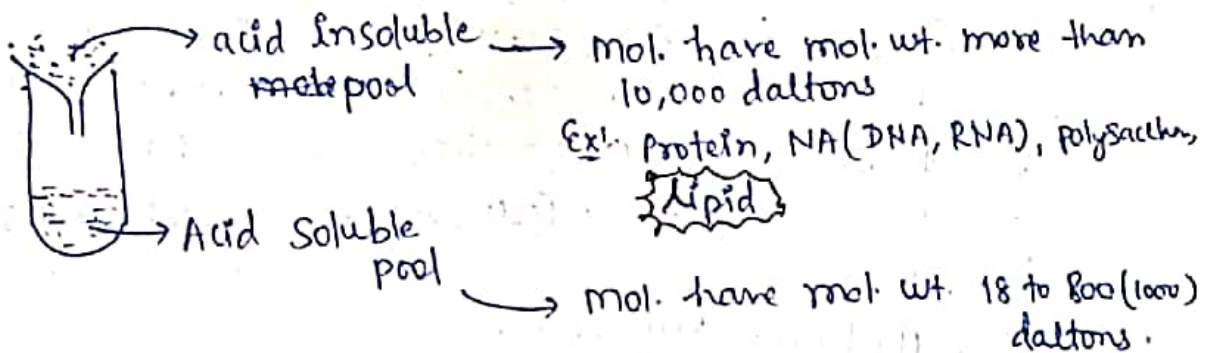 acid insoluble → mol. have mol. wt. more than
pool 10,000 daltons
Ex!. Protein, NA (DNA, RNA), polysacchr,
Lipid
→ Acid Soluble
pool
→ mol. have mol. wt. 18 to 800 (1000)
daltons.